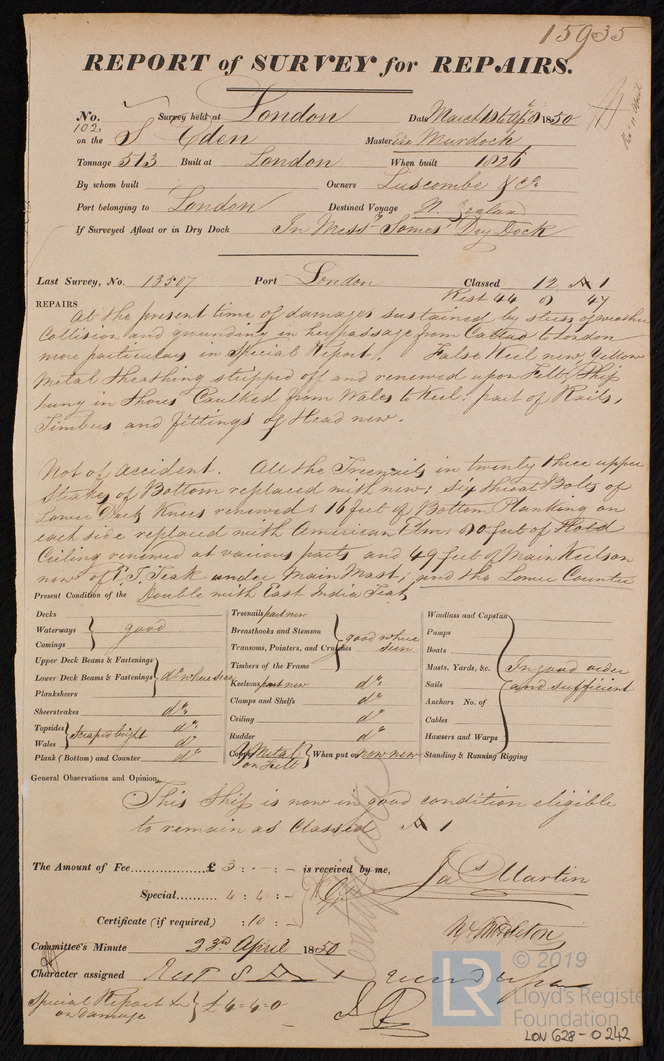 15935
REPORT of SURVEY for REPAIRS.
No. 102 Survey held at London Date March 16 Apl 9 1850
on the S Eden Master Murdock
Tonnage 513 Built at London When built 1826
By whom built Owners Luscombe & Co
Port belonging to London Destined Voyage N. Zealand
If Surveyed Afloat or in Dry Dock In Messrs Somes' Dry Dock
Last Survey, No. 13507 Port London Classed 12 A 1
Rest 44 47
REPAIRS
At the present time of damages sustained by stress of weather
Collision and grounding in her passage from to London
more particulars in Special Report. False Keel new, Yellow
Metal Sheathing stripped off and renewed upon Felt, Ship
hung in Shores Caulked from Wales to Keel: part of Rails,
Timbers and fittings of Head new.
Not of Accident. All the Treenails in twenty three upper
Strakes of Bottom replaced with new; Six throat Bolts of
Lower Deck Knees renewed; 16 feet of Bottom Planking on
each side replaced with American Elm; feet of Hold
Ceiling renewed at various parts and 49 feet of Main Keelson
new of E. I. Teak under Main Mast; and the Lower Counter
Present Condition of the Double with East India Teak
Decks
Waterways good
Comings
Upper Deck Beams & Fastenings
Lower Deck Beams & Fastenings do where seen
Planksheers
Sheerstrakes do
Topsides scraped bright do
Wales do
Plank (Bottom) and Counter do
Treenails part new
Breasthooks and Stemson good where
Transoms, Pointers, and Crutches seen
Timbers of the Frame
Keelsons part new do
Clamps and Shelfs do
Ceiling do
Rudder do
Copper Y Metal on Felt When put on now new
Windlass and Capstan
Pumps
Boats
Masts, Yards, &c. In good order
Sails and sufficient
Anchors No. of
Cables
Hawsers and Warps
Standing & Running Rigging
General Observations and Opinion,
This Ship is now in good condition eligible
to remain as Classed A 1
The Amount of Fee £ 3 : - : - is received by me,
Special 4 : 4 : -
Jas Martin
Certificate (if required) : 10 : -
Certificate
Committee's Minute 23rd April 1850
Character assigned Rest A 1
Special Report £ on damage £4=4=0
© 2019
LR
Lloyd's Register
Foundation
LON 628-0242